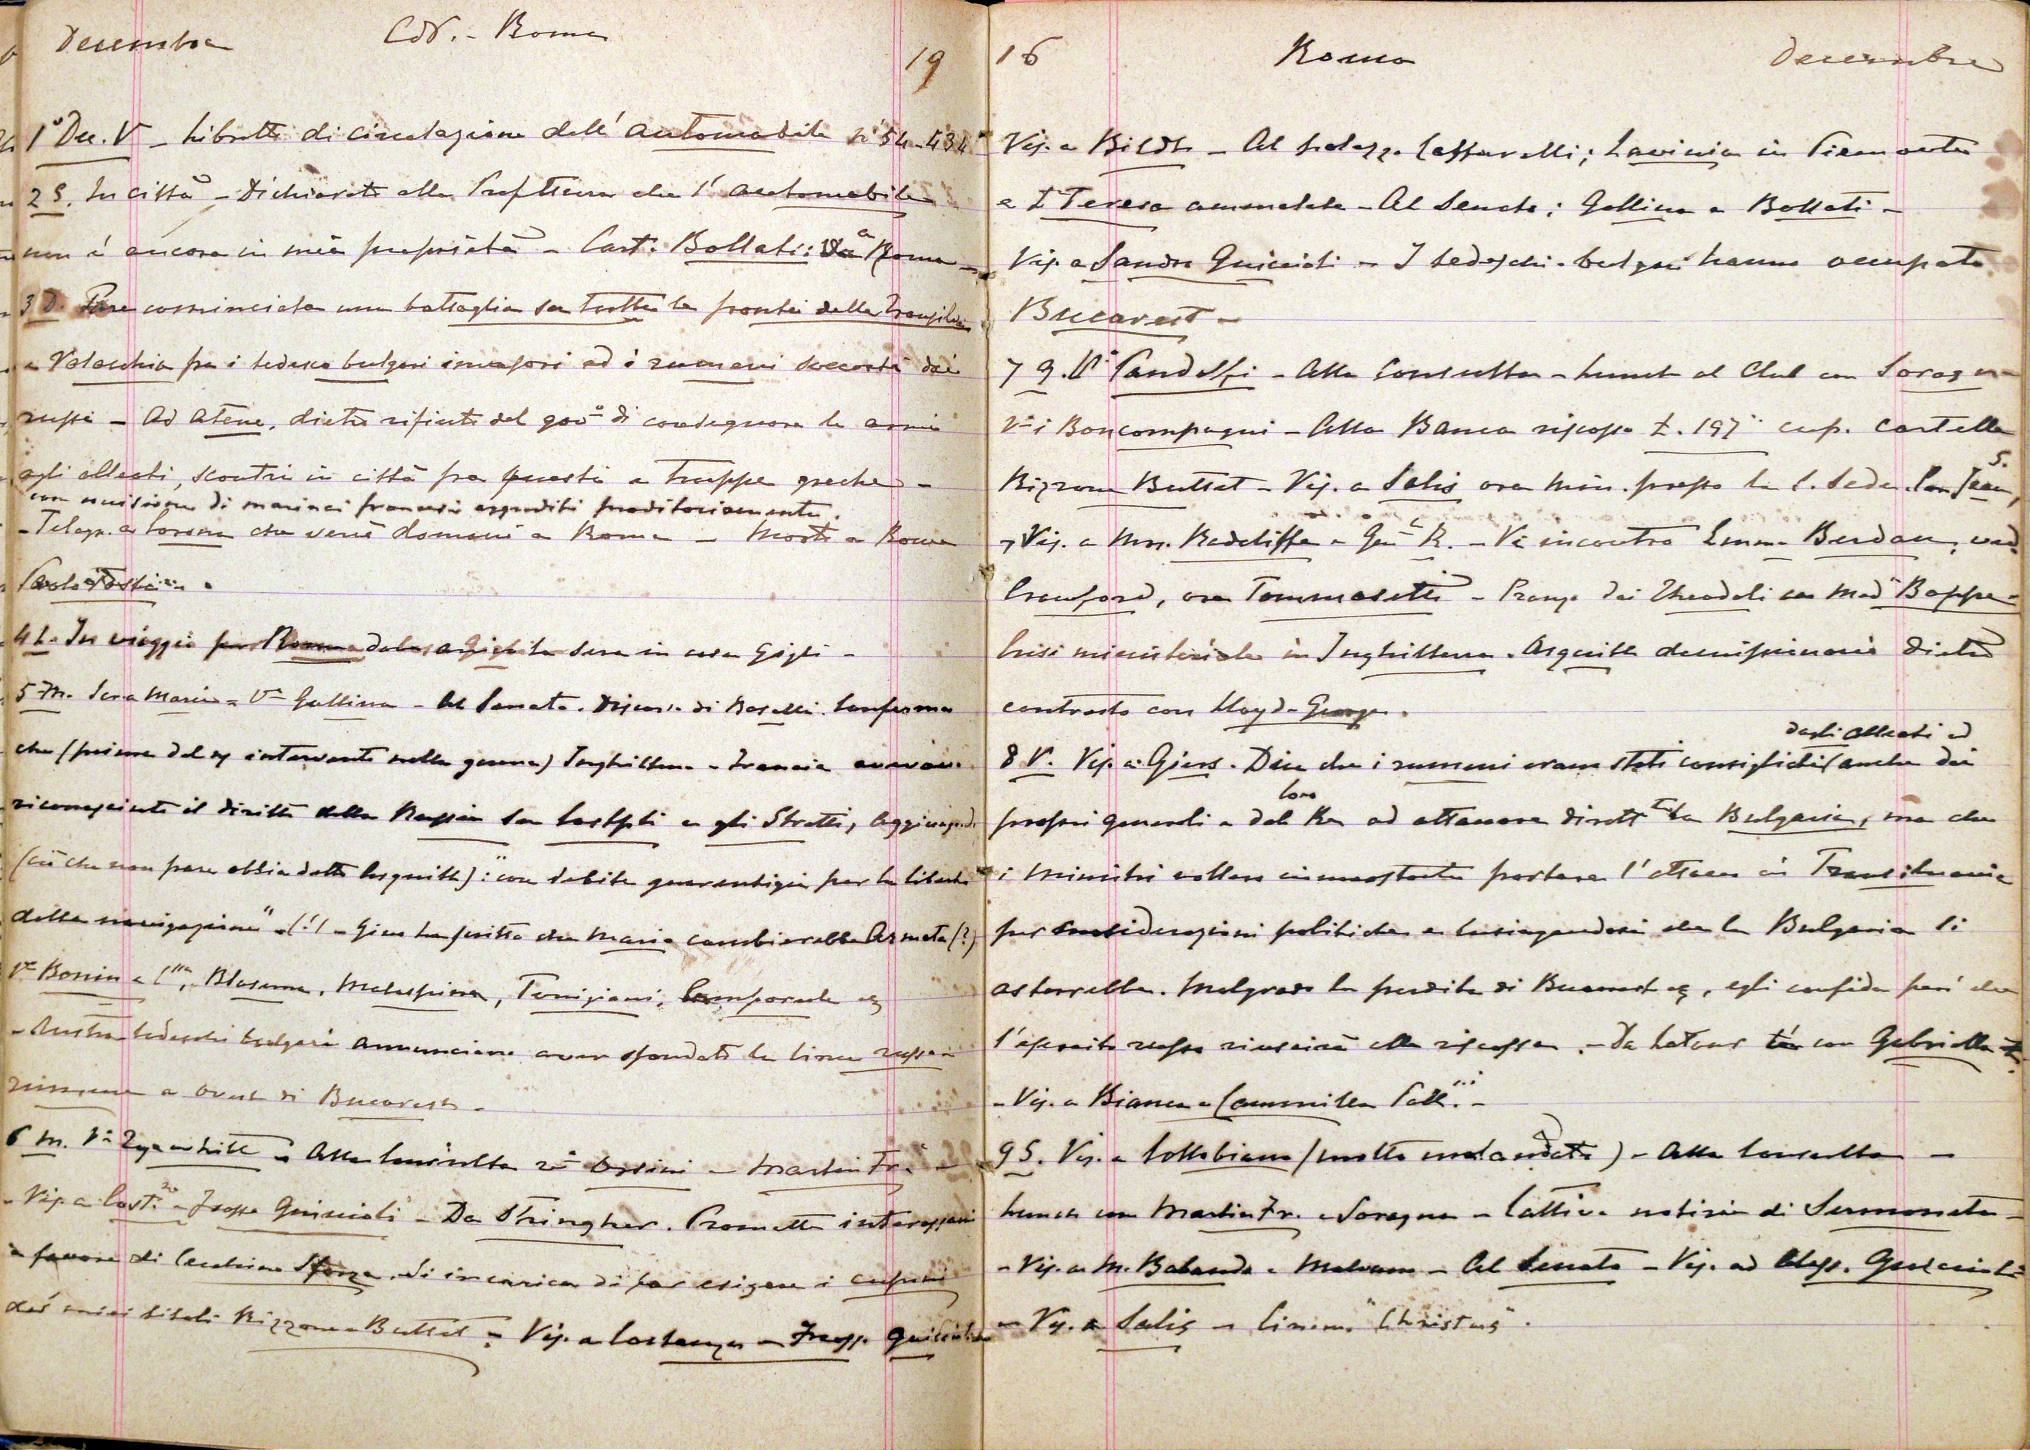 Decembre Cdr. - Roma 19
1° Dec. V - Libretto di circolazione dell'automobile n° 54-434
2 S. In città - Dichiarato alla Prefettura che l'automobile
non è ancora in mia proprietà - Cart. Bollati: Roma -
3 D. Pare cominciata una battaglia su tutta la fronte della Transilvania
e Valacchia fra i tedesco bulgari invasori ed i rumeni soccorsi dai
russi - Ad Atene, dietro rifiuto del gov° di consegnare le armi
agli alleati, scontri in città fra questi e truppe greche -
con uccisione di marinai francesi aggrediti proditoriamente.
- Telegr. a che verrò domani a Roma - Morto a Roma
Paolo Tosti.
4 L. In viaggio per Roma la sera in casa Gigli -
5 M. Sera Maria - Va Gallina - Al Senato. Discorso di Boselli. Conferma
che (prima del ns intervento nella guerra) Inghilterra e Francia avevano
riconosciuto il diritto della Russia su Costpli e gli Stretti, aggiungendo
(ciò che non pare abbia detto Asquith): "con debite guarentigie per la libertà
della navigazione" (!) - Giers ha scritto che Mario cambierebbe Armata (?)
Va Bonin e Blaserna, Malaspina, Torrigiani,
- Austro tedeschi bulgari annunciano aver sfondato la linea russo
rumena a ovest di Bucarest -
6 M. - Alla Consulta Orsini - Martin Fr.
- Vis. a Cost. Guiccioli - Da Stringher. Promette interessarsi
a favore di Cecchino Sforza. Si incarica di far esigere i cuponi
dei miei titoli Rizzone Buttat - Vis. a Costanza - Guiccioli
16 Roma Decembre
Vis. a Bildt - Al palazzo Caffarelli; Lavinia in Piemonte
e Teresa ammalata - Al Senato: Gallina e Bollati -
Vis. a Sandro Guiccioli - I tedeschi-bulgari hanno occupato
Bucarest -
7 G. Va Pandolfi - Alla Consulta - Lunch al Club con Soragna
Va i Boncompagni - Alla Banca riscosso £. 197 cup. cartelle
Rizzone Buttat - Vis. a Salis ora min. presso la S. Sede.
Vis. a Mrs. Radcliffe e R. - Vi incontro Emma Berdan, ved.
Crawford, ora Tommasetti - Pranzo dai Theodoli con Mad. Boppe -
Crisi ministeriale in Inghilterra. Asquith demissionario dietro
contrasto con Lloyd-George.
8 V. Vis. a Giers. Dice che i rumeni erano stati consigliati dagli alleati ed anche dai
propri generali e dal loro Re ad attaccare la Bulgaria, ma che
i ministri vollero innanzitutto portare l'attacco in Transilvania
per considerazioni politiche e lusingandosi che la Bulgaria si
asterrebbe. Malgrado la perdita di Bucarest, egli confida però che
l'esercito russo riuscirà alla riscossa. - Da Latour tè con Gabriella
- Vis. a Bianca e Cammilla
9 S. Vis. a Collobiano (molto malandato) - Alla Consulta -
Lunch con Martin Fr. e Soragna - Cattive notizie di Sermoneta -
- Vis. a M. e Malvano - Al Senato - Vis. ad Aless. Guiccioli
- Vis. a Salis - Cinema "Christus".